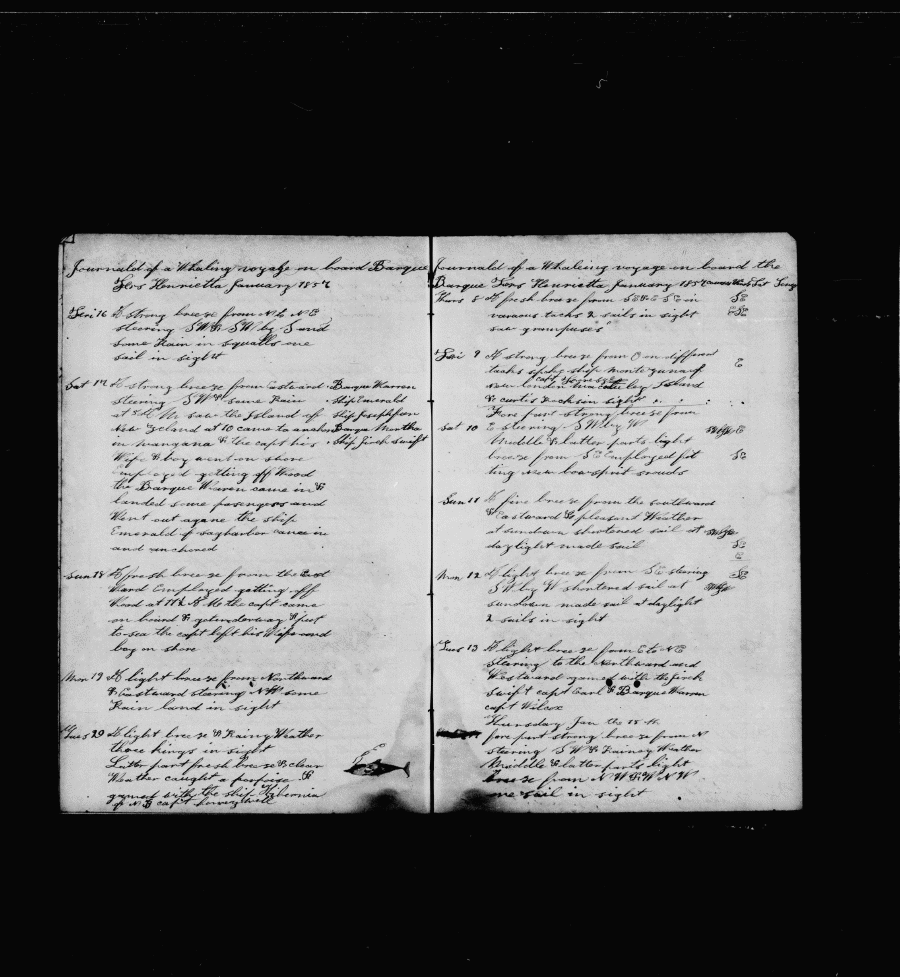 Journald of a Whaling voyage on board Barque
Henrietta January 185
Fri 16 A strong breeze from N E N E
steering S W & S W by S and
some Rain in squalls one
sail in sight
Sat 17 A strong breeze from Eastward
steering some Rain
at M saw the Island of
New Zeland at 10 came to anchor
in mangana & the capt his
Wife & boy went on shore
Employed getting off Wood
the Barque Warren came in &
landed some pasengers and
Went out agane the ship
Emerald of sagharbor came in
and anchored
Barque Warren
Ship Emerald
Ship Josephson
Barque Martha
Ship Jireh Swift
Sun 18 A fresh breeze from the East
Ward Employed getting off
Wood at M the capt came
on bourd & got underway & put
to sea the capt left his Wife and
boy on shore
Mon 19 A light breeze from Northward
& Eastward steering N W some
Rain land in sight
Tues 20 A light breeze & Rainy Weather
three kings in sight
Latter part fresh breeze & clear
Weather caught a porpise &
gamed with the ship Hibernia
of N B capt
Journald of a Whaleing voyage on board the
Barque Henrietta January 185
Thurs 8 A fresh breeze from S E & E S E in
various tacks 2 sails in sight
saw grampuses
Fri 9 A strong breeze from on different
tacks spoke ship Montezuma of
New london by Island
& curtis Rock in sight
Fore part strong breeze from
Sat 10 E steering S W by W
Middle & latter parts light
breeze from S E Employed fit
ting new bowsprit srouds
Sun 11 A fine breeze from the southward
& Eastward & pleasant Weather
at sundown shortened sail at
daylight made sail
Mon 12 A light breeze from S E steering
S W by W shortened sail at
sundown made sail at daylight
2 sails in sight
Tues 13 A light breeze from E to N E
stearing to the Northward and
Westward gamed with the Jireh
Swift capt Earl & Barque Warren
capt Wilcox
Thursday Jan the 15 th
fore part strong breeze from N
steering S W & Rainey Weather
Middle & latter parts light
breeze from N W & W N W
one sail in sight